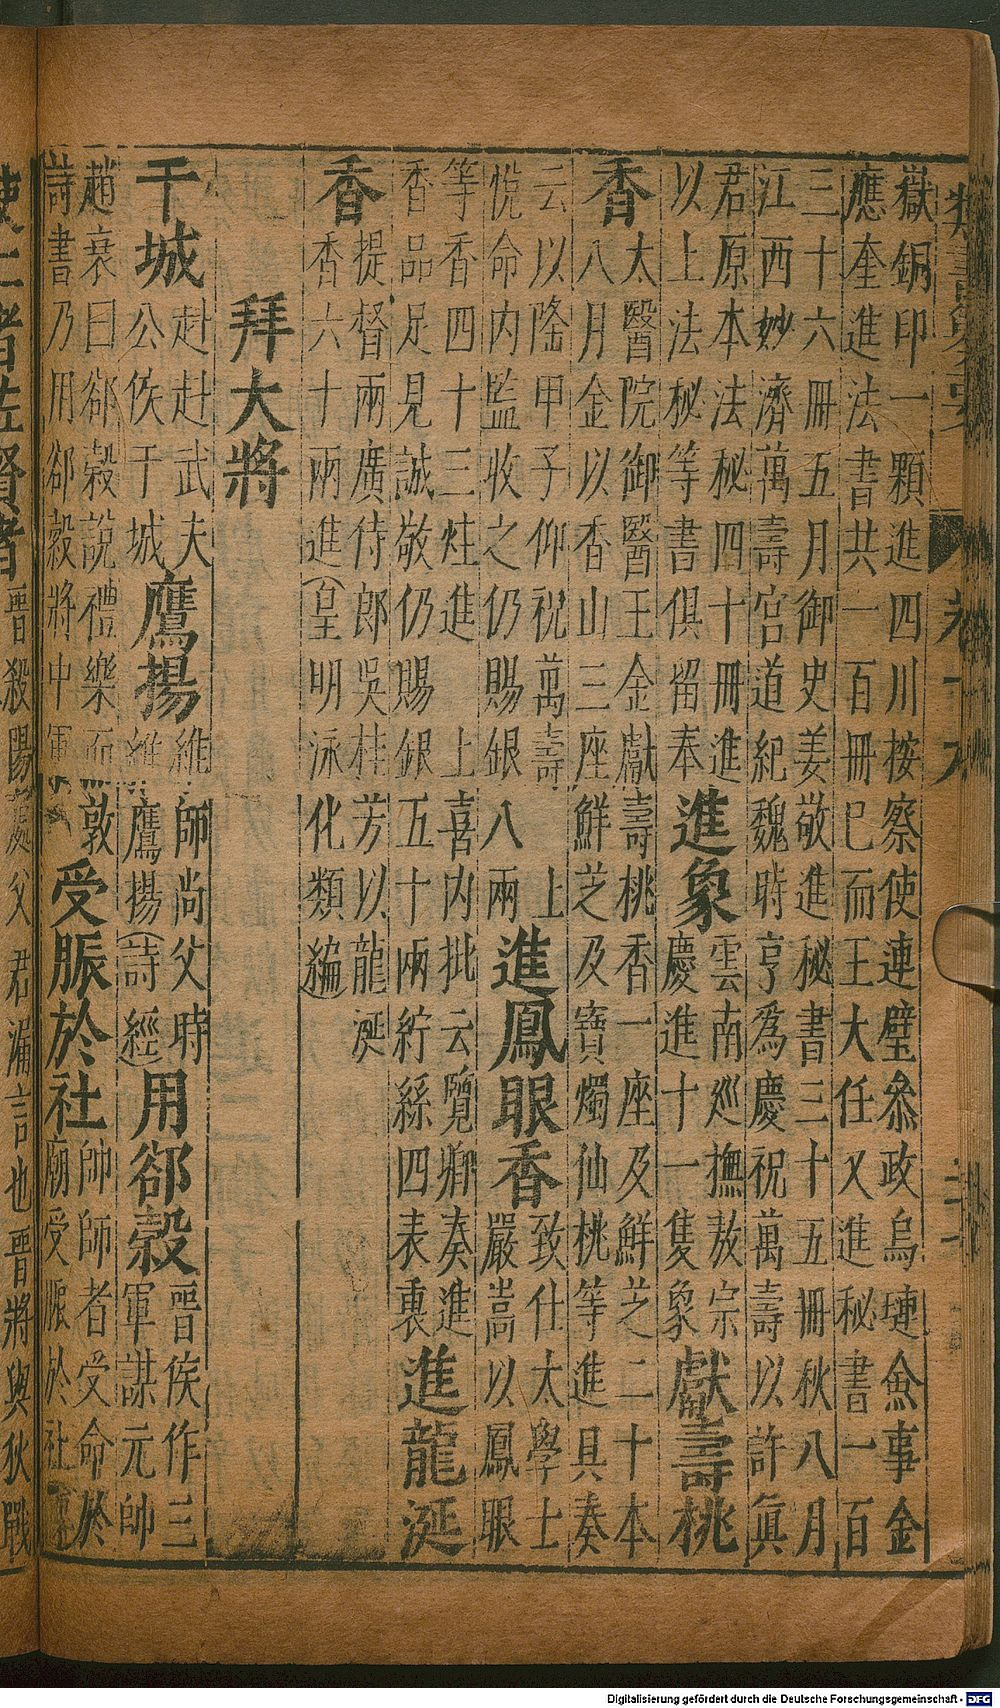 嶽銅印一顆進四川按察使連璧叅政烏璉僉事金
應奎進法書共一百冊巳而王大任又進秘書一百
三十六冊五月御史姜敬進秘書三十五冊秋八月
江西妙濟萬壽宮道紀魏時亨爲慶祝萬壽以許眞
君原本法秘四十冊進
以上法秘等書俱留奉
進象
雲南巡撫敖宗
慶進十一隻象
獻壽桃
香
太醫院御醫王金獻壽桃香一座及鮮芝二十本
八月金以香山三座鮮芝及寶燭仙桃等進具奏
云以隆甲子仰祝萬壽 上
悅命內監收之仍賜銀八兩
進鳳眼香
致仕太學士
嚴嵩以鳳眼
等香四十三炷進 上喜内批云覽卿奏進
香品足見誠敬仍賜銀五十兩紵絲四表裏
進龍涎
香
提督兩廣侍郎吳桂芳以龍涎
香六十兩進(皇明泳化類編)
拜大將
干城
赳赳武夫
公侯干城
鷹揚
維師尚父時
維鷹揚(詩經)
用郤縠
晉侯作三
軍謀元帥
趙衰曰郤縠說禮樂而敦
詩書乃用郤縠將中軍
受脤於社
帥師者受命於
廟受脤於社
使仁者佐賢者
晉殺陽處父君漏言也晉將與狄戰
Digitalisierung gefördert durch die Deutsche Forschungsgemeinschaft - DFG